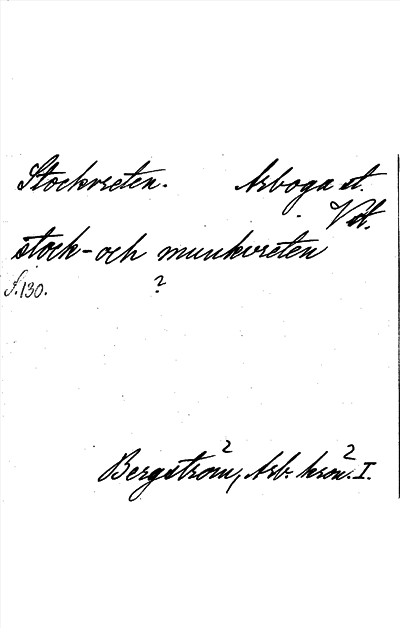 Stockvreten. Arboga st.
Vstl.
stock- och munkvreten
f. 130. ?
Bergström, Arb. krön. I.